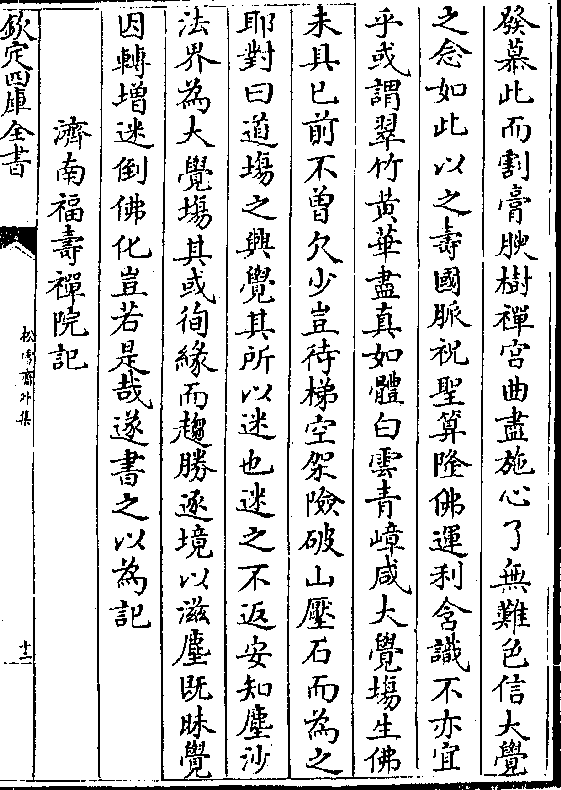 發慕此而割膏腴樹禪宫曲盡施心了無難色信大覺
之念如此以之壽國脈祝聖算隆佛運利含識不亦宜
乎或謂翠竹黄華盡真如體白雲青嶂咸大覺塲生佛
未具已前不曽欠少豈待梯空架險破山壓石而為之
耶對曰道塲之興覺其所以迷也迷之不返安知塵沙
法界為大覺塲其或徇緣而趨勝逐境以滋塵既昧覺
因轉增迷倒佛化豈若是哉遂書之以為記
濟南福壽禪院記
欽定四庫全書
松雪齋外集
十二